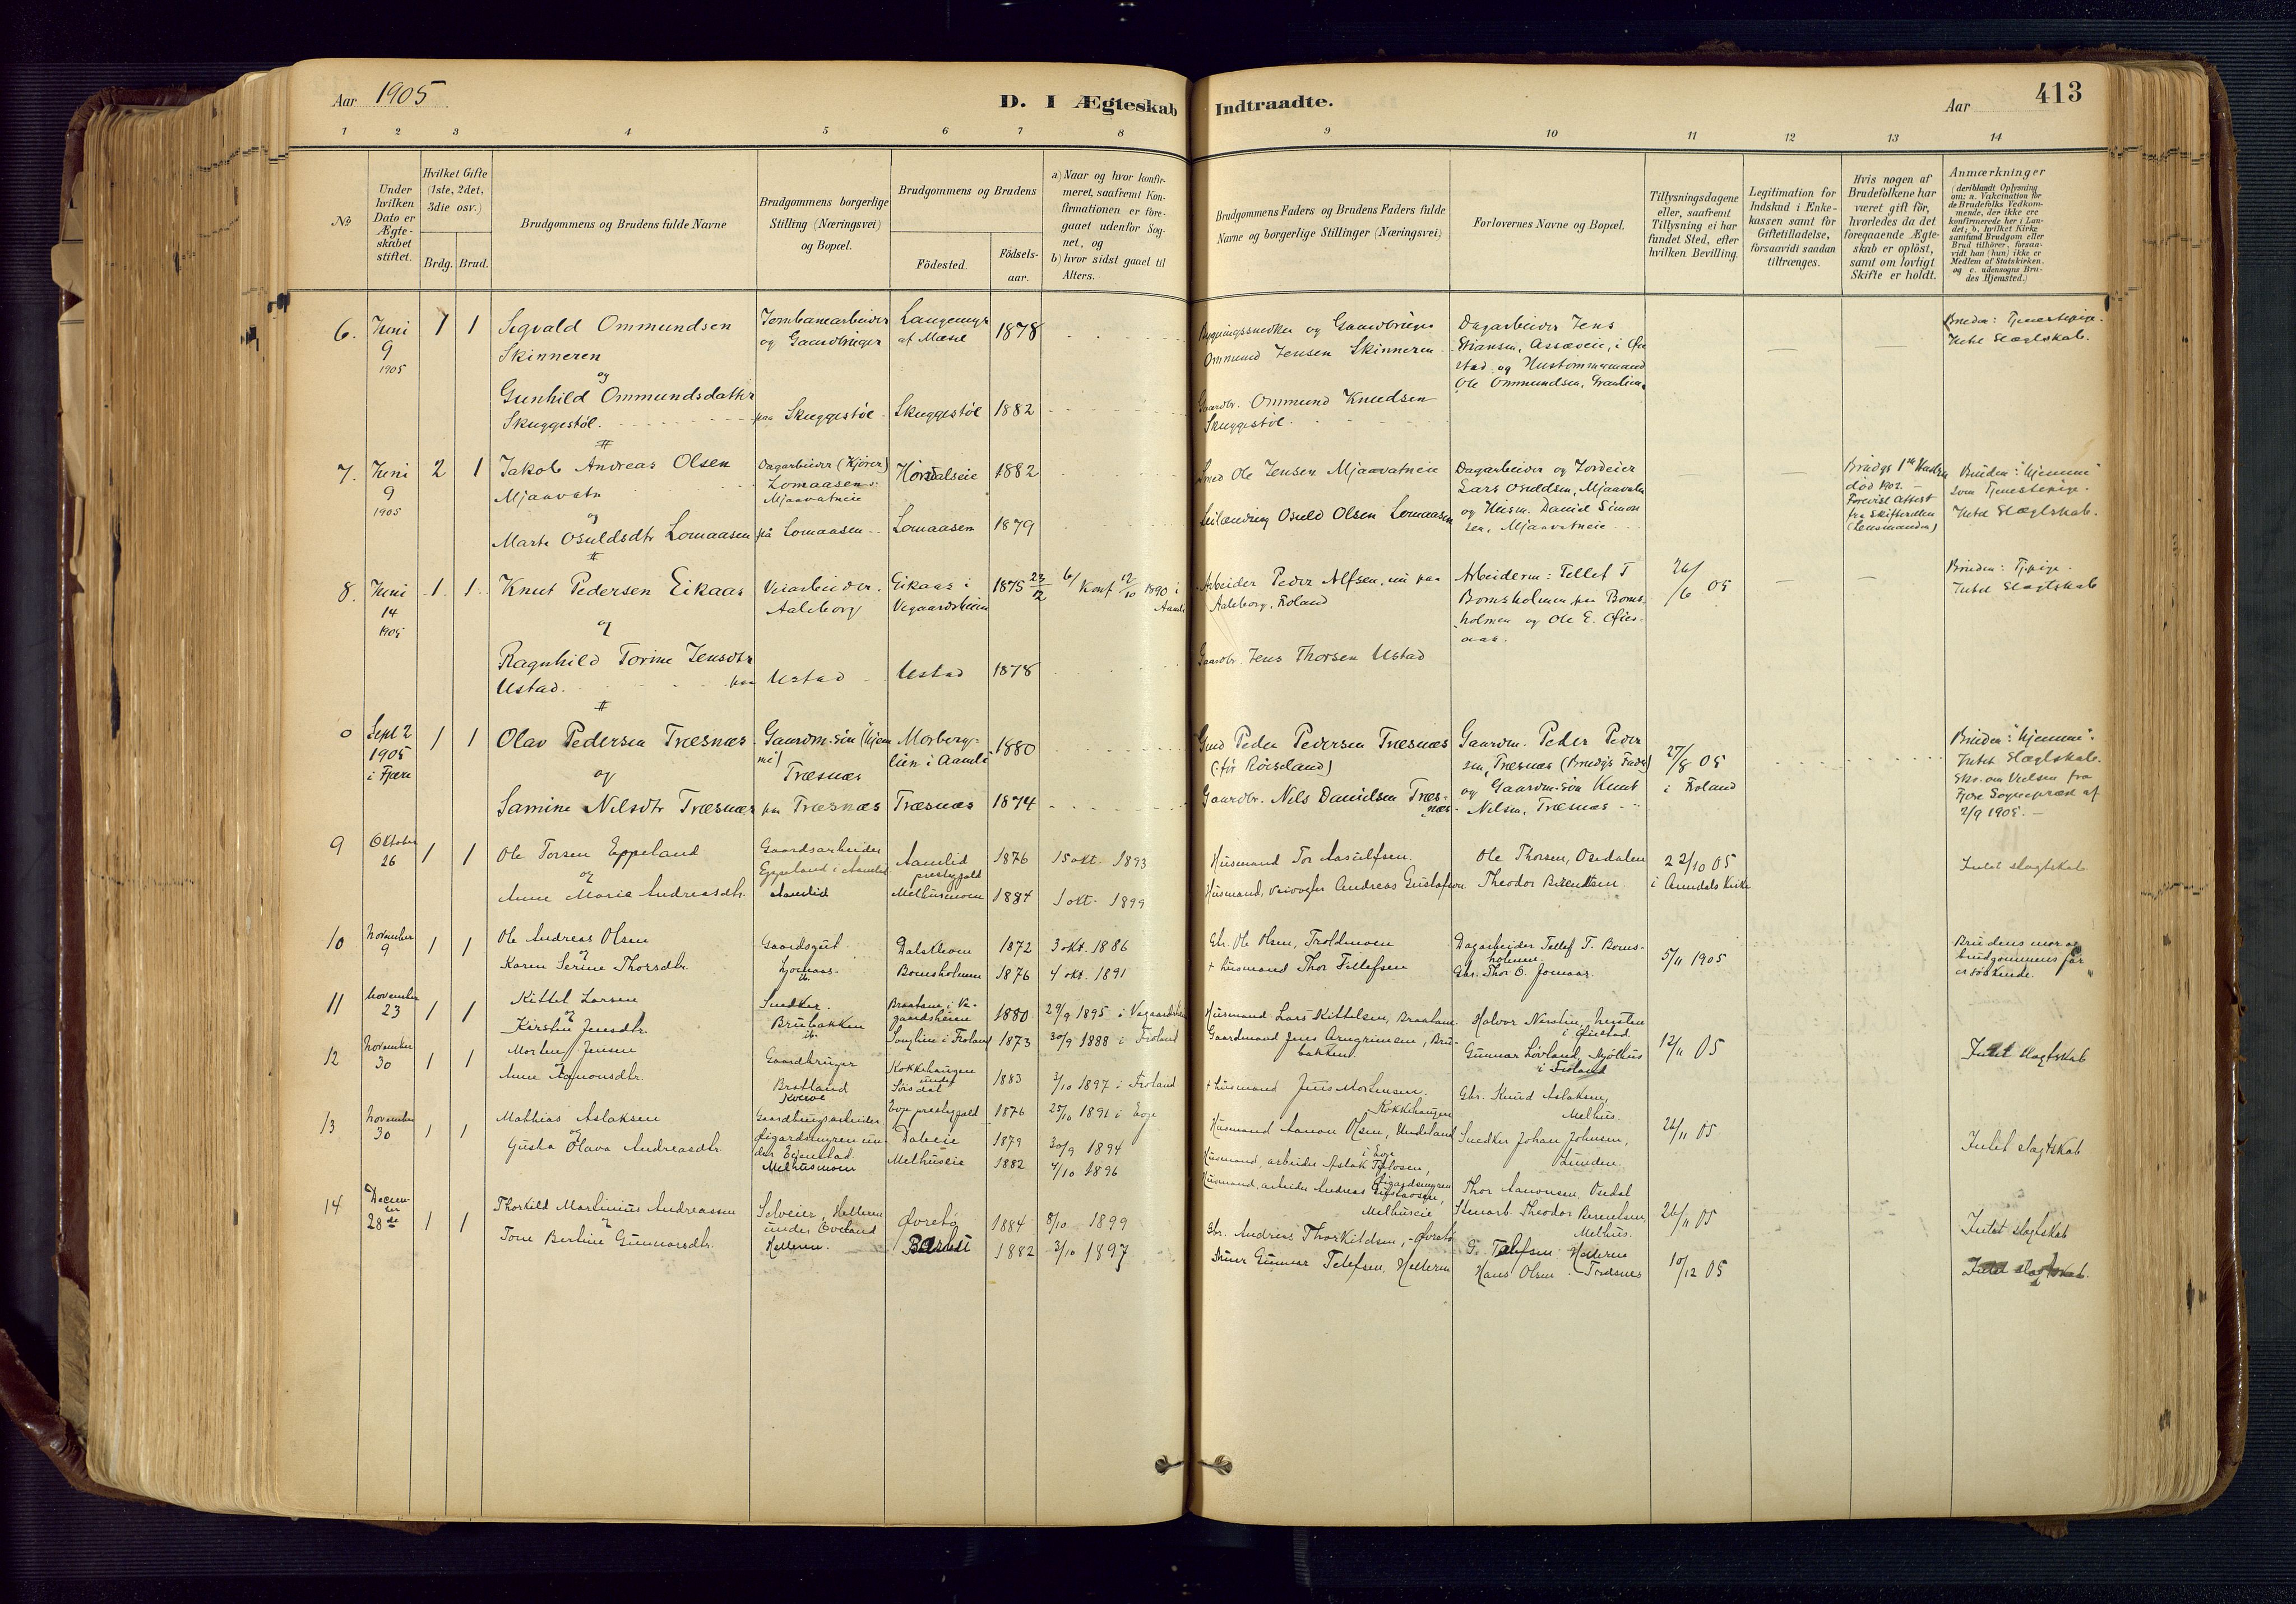 Aar 1905
D. I Ægteskab Indtraadte.
Aar
413
1 2 3 4 5 6 7 8 9 10 11 12 13 14
No
Under hvilken Dato er Ægteskabet stiftet.
Hvilket Gifte (1ste, 2det, 3die osv.)
Brdg. Brud.
Brudgommens og Brudens fulde Navne
Brudgommens borgerlige Stilling (Næringsvei) og Bopæl.
Brudgommens og Brudens
Fødested.
Fødsels-aar.
a) Naar og hvor konfirmeret, saafremt Konfirmationen er foregaaet udenfor Sognet, og
b) hvor sidst gaaet til Alters.
Brudgommens Faders og Brudens Faders fulde Navne og borgerlige Stillinger (Næringsvei)
Forlovernes Navne og Bopæl.
Tillysningsdagene eller, saafremt Tillysning ei har fundet Sted, efter hvilken Bevilling.
Legitimation for Indskud i Enkekassen samt for Giftetilladelse, forsaavidt saadan tiltrænges.
Hvis nogen af Brudefolkene har været gift før, hvorledes da det foregaaende Ægteskab er opløst, samt om lovligt Skifte er holdt.
Anmærkninger
(deriblandt Oplysning om: a. Vakcination for de Brudefolks Vedkommende, der ikke ere konfirmerede her i Landet; b. hvilket Kirkesamfund Brudgom eller Brud tilhører, forsaavidt han (hun) ikke er Medlem af Statskirken, og c. udensogns Brudes Hjemsted.)
6. Juni 9 1905
1 1
Sigvald Ommundsen Skinneren
og
Gunhild Ommundsdatter Skuggestöl.
Jernbanearbeider og Gaardbruger
paa Skuggestöl
Langemyr af Mæsel 1878
Skuggestöl 1882
Bygningssnedker og Gaardbruger Ommund Jensen Skinneren
Gaardbr. Ommund Knudsen Skuggestöl.
Dagarbeider Jens Stiansen, Assæveie, i Øiestad og Husmommand Ole Ommundsen,
Bruden: Tjenestepige.
Intet Slægtskab.
7. Juni 9 1905
2 1
Jakob Andreas Olsen Mjaavatn
og
Marte Osuldsdtr Lomaasen
Dagarbeider (Kjører) Lomaasen
Mjaavatneie
på Lomaasen
1882
Lomaasen 1879
Smed Ole Jensen Mjaavatneie
Leilænding Osuld Olsen Lomaasen
Dagarbeider og Jordeier Lars Osuldsen, Mjaavatn
og Husm. Daniel Simonsen, Mjaavatneie
Brudgs 1ste Hustru död 1902.
Forevist Attest fra Skifteretten (Lensmanden)
Bruden: "hjemme" som Tjenestepige.
Intet Slægtskab.
8. Juni 14 1905
1. 1.
Knut Pedersen Eikaas
og
Ragnhild Torine Jensdtr Ustad. paa
Veiarbeider. Aaleborg
Ustad
Eikaas i Vegaardsheien 1875 23/12
Ustad 1878
b/ Konf 12/10 1890 i Aamli
Arbeider Peder Alfsen, nu paa Aaleborg, Froland
Gaardbr. Jens Thorsen Ustad
Arbeiderne: Tellef T Bomsholmen paa Bomsholmen og Ole E.
26/6 05
Bruden: Tj.pige.
Intet Slægtskab
0 Sept 2 1905 i Fjære
1 1
Olav Pedersen Træsnæs
og
Samine Nilsdtr Træsnæs
Gaardm.sön (hjemme)
Træsnæs
paa Træsnæs
Morberglien i Aamli 1880
Træsnæs 1874
Gmd Peder Pedersen Træsnæs (för Röiseland)
Gaardbr. Nils Danielsen Træsnæs
Gaardm. Peder Pedersen, Træsnæs (Brudgs Fader)
og Gaardm.sön Knut Nilsen, Træsnæs
27/8 05 i Froland
Bruden: "hjemme".
Intet Slægtskab.
Skr. om Vielsen fra Fjære Sognepræst af 2/9 1905.
9 Oktober 26
1 1
Ole Torsen Eppeland
og
Anne Marie Andreasdtr.
Gaardsarbeider
Eppeland i Aamlid
Aamlid
Aamlid prestegjeld 1876
Melhusmoen 1884
15 okt. 1893
1 okt. 1899
Husmand Tor Aasulfsen.
Husmand, veivogter Andreas Gustafsen
Ole Thorsen, Osedalen
Theodor Berentsen
22/10 05
i Arendals Kirke
Intet slagtskab
10 November 9
1 1
Ole Andreas Olsen
og
Karen Serine Thorsdtr.
Gaardsgut.
Ljomaas.
ib.
1872
Bomsholmen 1876
3 okt. 1886
4 okt. 1891
Gbr. Ole Olsen, Troldmoen
+ husmand Thor Tellefsen
Dagarbeider Tellef T. Bomsholmen
Gbr. Thor O. Jomaas.
5/11 1905
Brudens mor og brudgommens far er söskende.
11 November 23
1 1
Kittel Larsen
og
Kirstin Jensdtr.
Snedker.
Brubakken
ib.
Braaten i Vegaardsheien 1880
Songlien i Froland 1873
29/9 1895 i Vegaardshei
30/9 1888 i Froland
Husmand Lars Kittelsen, Braaten.
Gaardmand Jens Arngrimsen, Brubakken
Halvor
i Øiestad
Gunnar Lövland, Mjölhus i Froland
12/11 05
Intet Slagtskab
12 November 30
1 1
Morten Jensen
Anne Aanonsdtr.
Gaardbruger
Bratland
Kokkehaugen under 1883
Evje prestegjeld 1876
3/10 1897 i Froland
25/10 1891 i Evje
+ husmand Jens Mortensen.
Kokkehaugen
Husmand Aanon Olsen, Undeland i Evje
Gbr. Knud Aslaksen, Melhus.
Snedker Johan Johnsen, Lunden.
26/11 05
Intet slagtskab
13 November 30
1 1
Mathias Aslaksen
og
Gusta Olava Andreasdtr.
Melhusmoen
1879
Melhuseie 1882
30/9 1894
4/10 1896
Husmand, arbeider Aslak
Husmand, arbeider Andreas Gustavsen, Melhuseie
Thor Aanonsen, Osedal
Stenarb. Theodor Berentsen, Melhus.
26/11 05
Intet slagtskab
14 December 28de
1 1
Thorkild Martinius Andreassen
og
Tone Bertine Gunnarsdtr.
Selveier, Helleren under
Helleren.
Øvretö 1884
1882
8/10 1899
3/10 1897
Gbr. Andreas Thorkildsen, Øvretö
Gunnar Telefsen, Helleren
G. Telefsen Helleren
Hans Olsen Træsnes
10/12 05
Intet slagtskab.